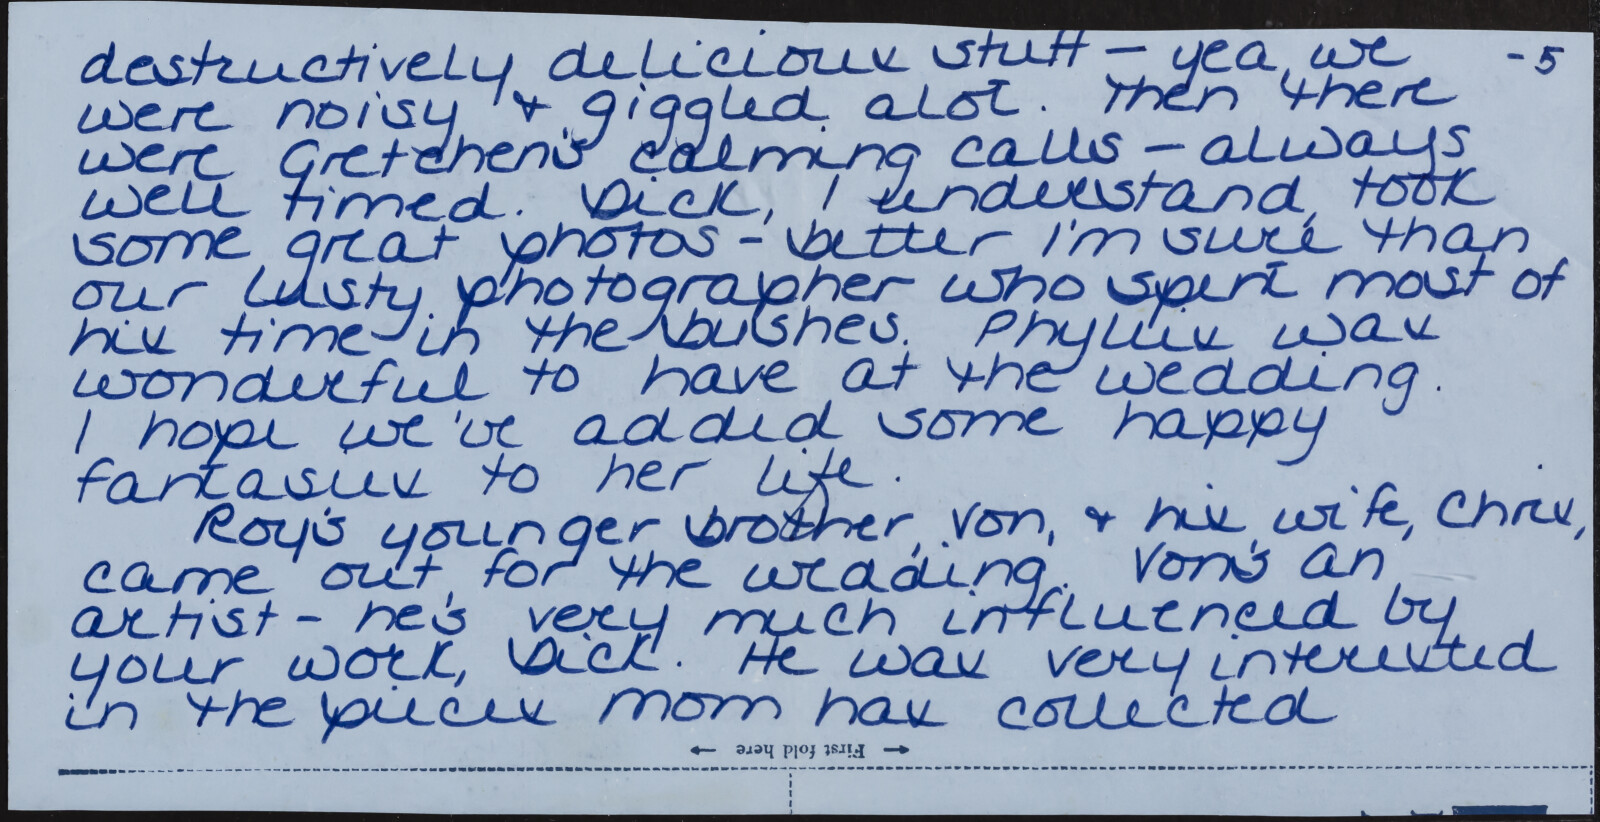 destructively delicious stuff – yea, we -5
were noisy & giggled alot. Then there
were Gretchen's calming calls – always
well timed. Dick, I understand, took
some great photos – better I'm sure than
our lusty photographer who spent most of
his time in the bushes. Phyllis was
wonderful to have at the wedding.
I hope we've added some happy
fantasies to her life.
Roy's younger brother, Von, & his wife, Chris,
came out for the wedding. Von's an
artist – he's very much influenced by
your work, Dick. He was very interested
in the pieces Mom has collected
← First fold here →